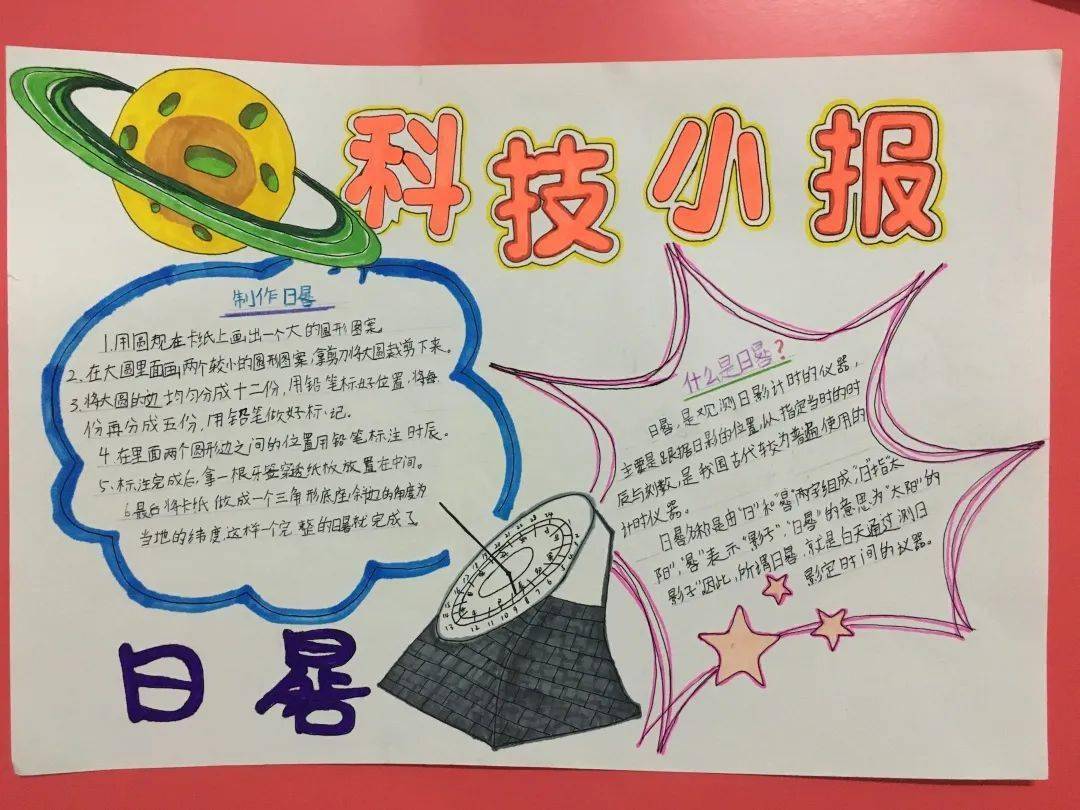 科技小报
制作日晷
1.用圆规在卡纸上画出一个大的圆形图案。
2.在大圆里面画两个较小的圆形图案,拿剪刀将大圆裁剪下来。
3.将大圆的边均匀分成十二份,用铅笔标好位置,将每
份再分成五份,用铅笔做好标记。
4.在里面两个圆形边之间的位置用铅笔标注时辰。
5.标注完成后,拿一根牙签穿透纸板放置在中间。
6.最后将卡纸做成一个三角形底座,斜边的角度为
当地的纬度,这样一个完整的日晷就完成了
什么是日晷?
日晷,是观测日影计时的仪器,
主要是跟据日影的位置,以指定当时的时
辰与刻数,是我国古代较为普遍使用的
计时仪器。
日晷的称是由"日"和"晷"两字组成,"日"指"太
阳","晷"表示"影子","日晷"的意思为"太阳的
影子"因此,所谓日晷,就是白天通过测日
影定时间的仪器。
日晷